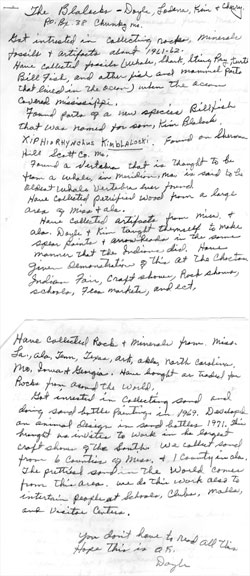 The Blalocks - Doyle, Ladene, Kim & Cherry.
P.O. Bx. 38 Chunky, ms.
Got intrested in collecting rocks, minerals
fossils & artifacts about 1961-62.
Have collected fossils (Whale, Shark, Sting Ray, Turtle
Bill Fish, and other fish and mammal parts
that lived in the ocean) when the ocean
covered Mississippi.
Found parts of a new species Billfish
that was named for son, Kim Blalock.
XIPHIORHYNCHUS KIMBLALOCKI. Found on
Hill Scott Co. Ms.
Found a Vertebra that is thought to be
from a Whale, in Meridian, Ms. is said to be
oldest Whale Vertebra ever found.
Have Collected petrified Wood from a large
area of Miss & ala.
Have Collected artifacts from Miss. &
ala. Doyle & Kim taught themself to make
spear Points & arrowheads in the same
manner that the Indians did. Have
given Demonstrations of this at the Choctaw
Indian Fair, Craft shows, Rock shows,
schools, Flea markets, and ect,
Have Collected Rock & Minerals from, Miss.
La, ala, Tenn, Texas, ark, North Carolina,
Mo, Iowa & Georgia. Have bought or traded for
Rocks from around the World.
Got intrested in Collecting sand and
doing sand bottle Paintings in 1969. Developed
an animal Design in sand bottles 1971, this
brought us invites to Work in the largest
craft shows of the South. We collect sand
from 6 Counties of Miss. & 1 County in ala.
The prettiest sand in the World comes
from this area. We do this work also to
entertain people at Schools, Clubs, Malls,
and Visitor Centers.
You don't have to read all this
Hope this is O.K.
Doyle